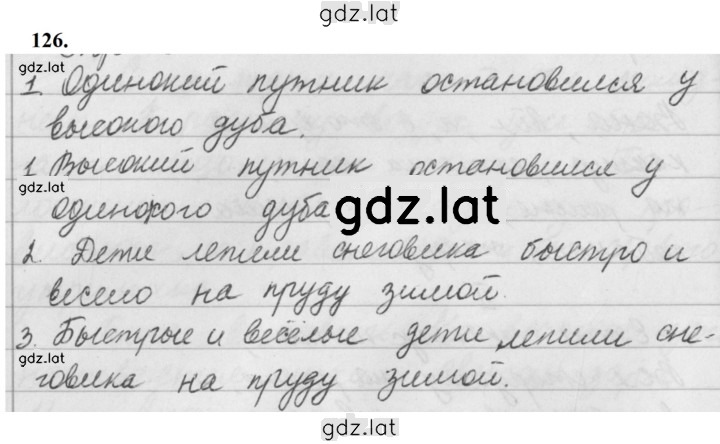 gdz.lat
126.
gdz.lat
1. Одинокий путник остановился у
высокого дуба.
1. Высокий путник остановился у
gdz.lat
одинокого дуба
gdz.lat
2. Дети лепили снеговика быстро и
весело на пруду зимой.
3. Быстрые и весёлые дети лепили сне-
gdz.lat
говика на пруду зимой.
gdz.lat